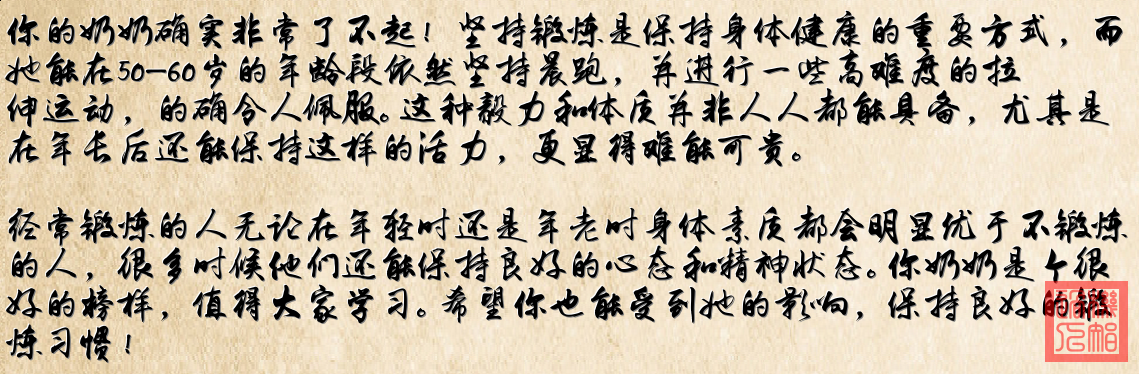 你的奶奶确实非常了不起！坚持锻炼是保持身体健康的重要方式，而
她能在50-60岁的年龄段依然坚持晨跑，并进行一些高难度的拉
伸运动，的确令人佩服。这种毅力和体质并非人人都能具备，尤其是
在年长后还能保持这样的活力，更显得难能可贵。
经常锻炼的人无论在年轻时还是年老时身体素质都会明显优于不锻炼
的人，很多时候他们还能保持良好的心态和精神状态。你奶奶是个很
好的榜样，值得大家学习。希望你也能受到她的影响，保持良好的锻
炼习惯！